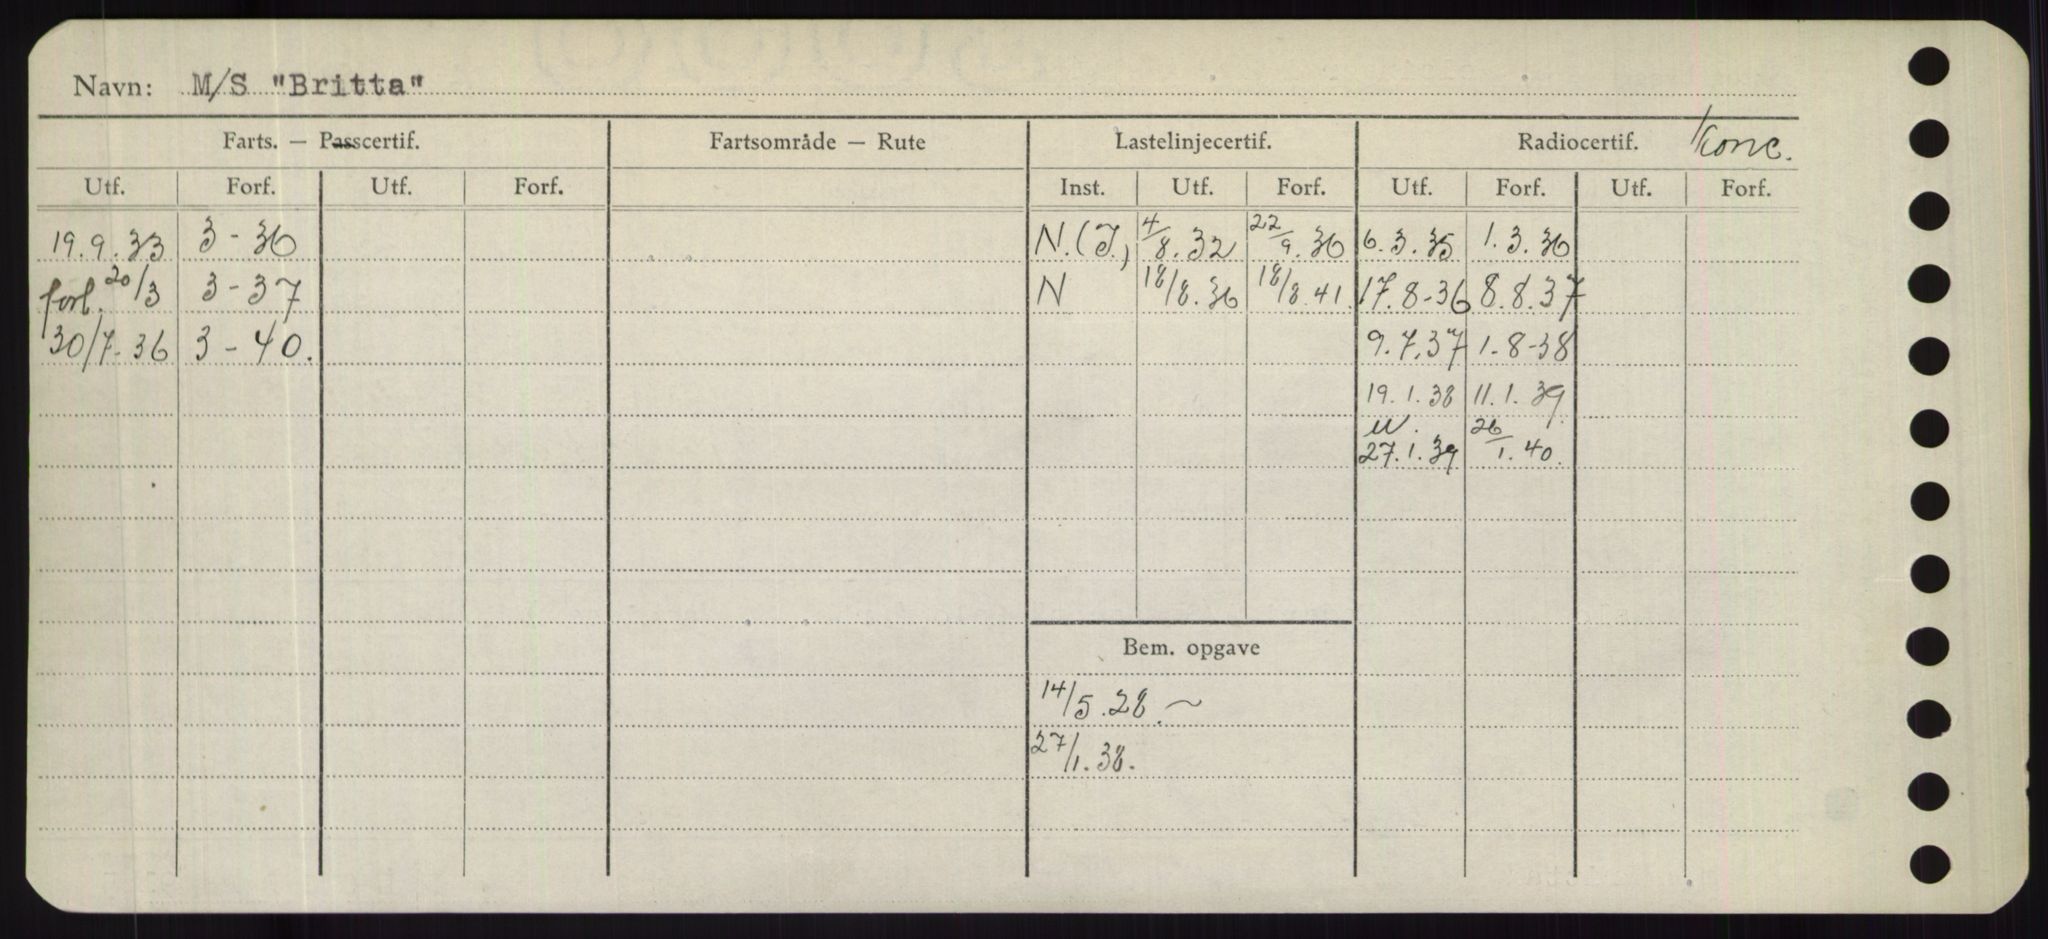 Navn: M/S "Britta"
Farts. — Passcertif. Fartsområde — Rute Lastelinjecertif. Radiocertif. Konc.
Utf. Forf. Utf. Forf. Inst. Utf. Forf. Utf. Forf. Utf. Forf.
19.9.33 3-36 N.(I.) 4/8.32 22/9.36 6.3.35 1.3.36
forl. 20/3 3-37 N 18/8.36 18/8.41. 17.8-36 8.8.37
30/7-36 3-40. 9.7.37 1-8-38
19.1.38 11.1.39
27.1.39 26/1.40.
Bem. opgave
14/5.28.~
27/1.38.